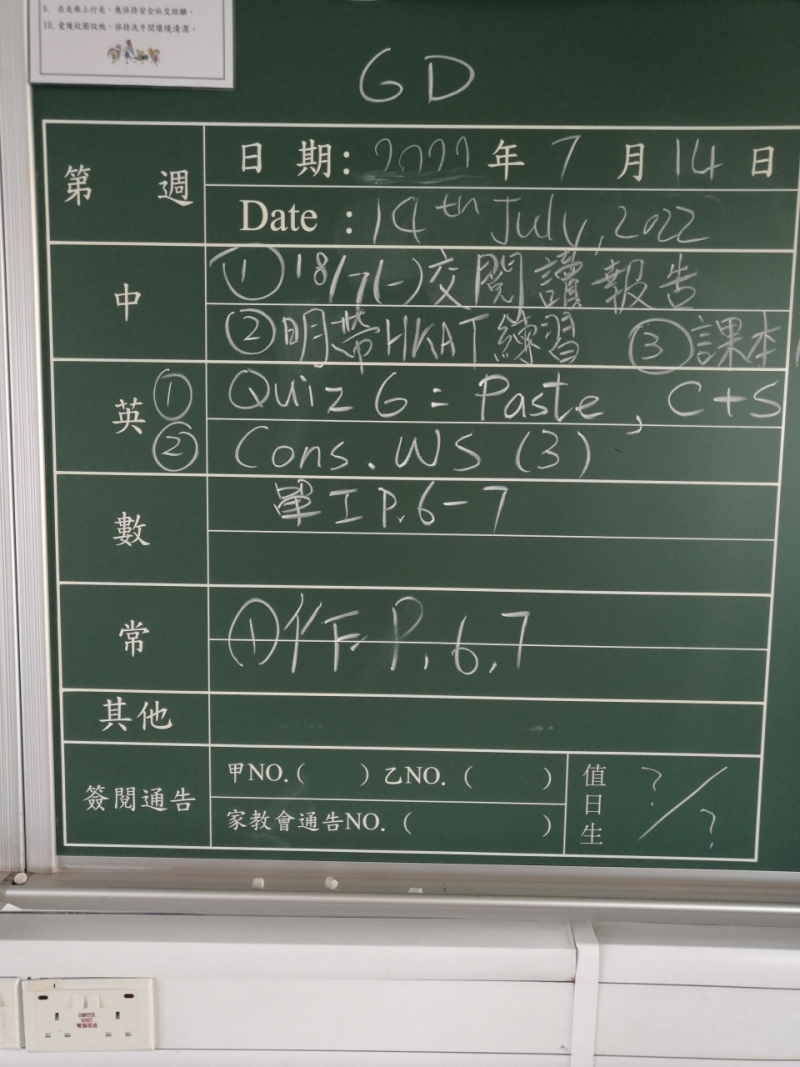 9. 在走廊上行走，應保持安全社交距離。
10. 愛護校園設施，保持洗手間環境清潔。
6D
第 週
日 期： 2022 年 7 月 14 日
Date : 14th July, 2022
中
① 18/7(一)交閱讀報告
② 明帶HKAT練習 ③ 課本
英
① Quiz 6 = Paste, C+S
② Cons. WS (3)
數
單工 P.6-7
常
① 作 P.6,7
其他
簽閱通告
甲NO.( ) 乙NO. ( )
家教會通告NO. ( )
值日生
? / ?
COMPUTER SOCKET
電腦插座